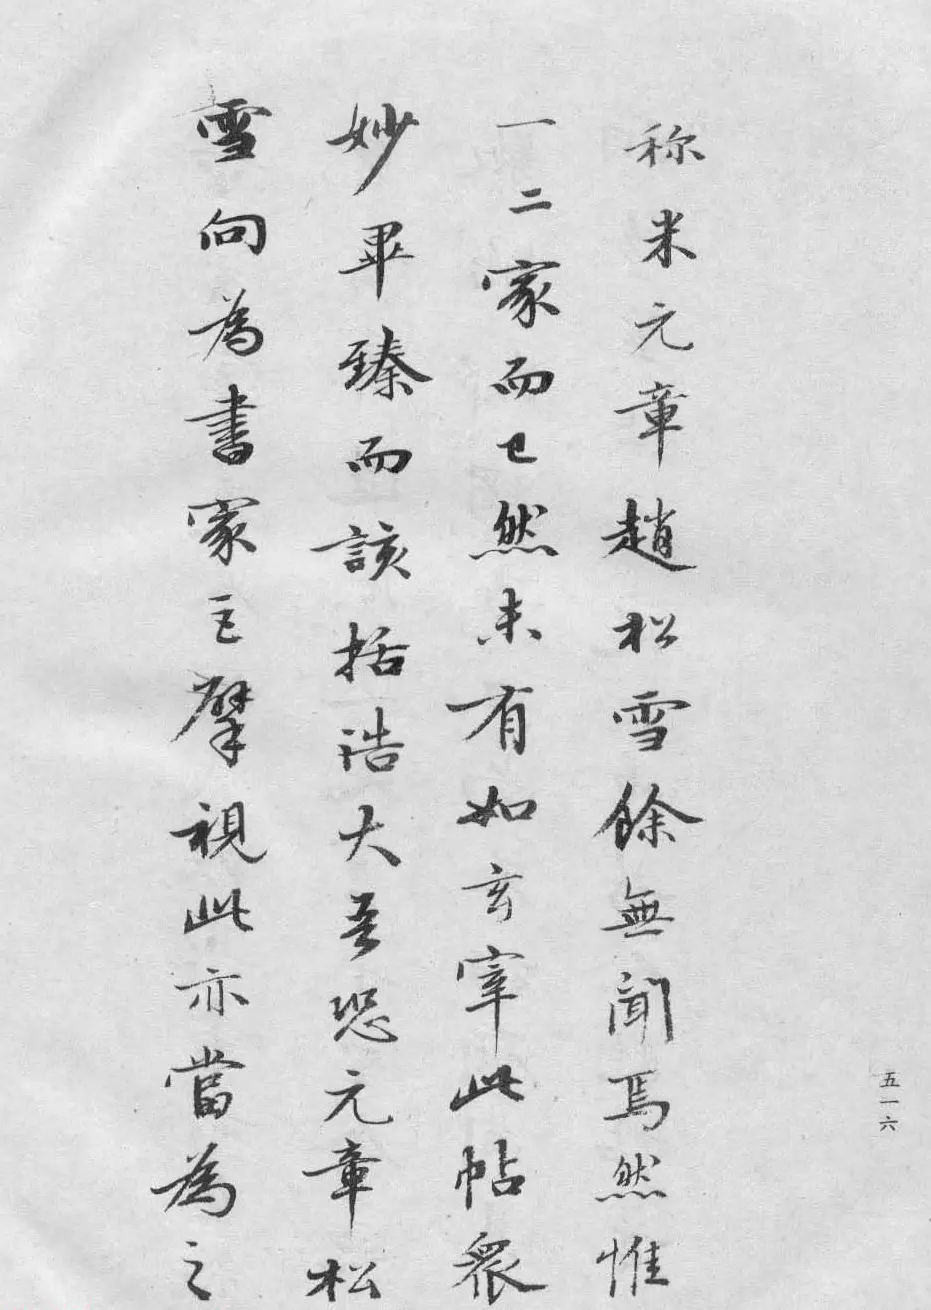 称米元章趙松雪餘無聞焉然惟
一二家而已然未有如玄宰此帖衆
妙畢臻而該括浩大吾恐元章松
雪向為書家巨擘視此亦當為之
五一六